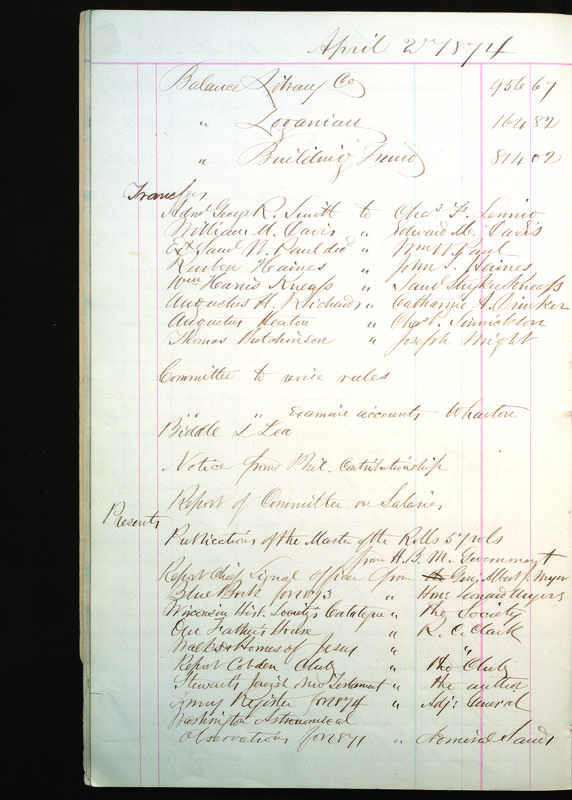 April 2nd 1874
Balance Library Co 956 67
" Loganian 164 82
" Building Fund 814 02
Transfers
Admr George R. Smith to Chas F.
William M. Davis " Edward M. Davis
Ex Saml N. Paul decd " Wm W Paul
Reuben Haines " John S. Haines
Wm Harris Kneass " Saml Stryker Kneass
Augustus H. Richards " Catharine A. Drinker
Augustus Heaton " Chas P. Sinnickson
Thomas Hutchinson " Joseph Wright
Committee to revise rules
" " Examine accounts Wharton
Biddle & Lea
Notice from Phil. Contributionship
Report of Committee on Salaries
Presents
Publications of the Master of the Rolls 57 vols
from H. B. M. Government
Report Chief Signal officer from Genl Albert J. Myer
Blue Book for 1873 " Hon. Leonard Myers
Wisconsin Hist. Society's Catalogue " the Society
Our Father's House " R. C. Clark
Walks & Homes of Jesus " "
Report Cobden Club " the Club
Stewart's Jewish New Testament " the author
Army Register for 1874 " Adjt General
Washington Astronomical
Observations for 1871 " Admiral Sands